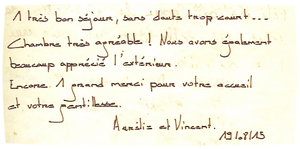 1 très bon séjour, sans doute trop court...
Chambre très agréable ! Nous avons également
beaucoup apprécié l'extérieur.
Encore 1 grand merci pour votre accueil
et votre gentillesse.
Aurélie et Vincent.
19/08/15